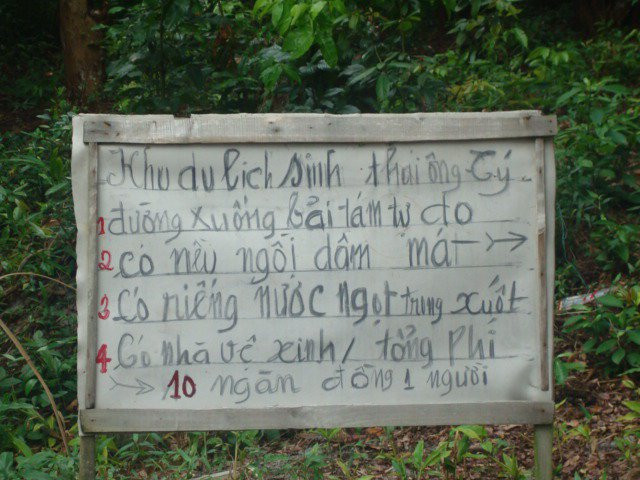 Khu du lich sinh thái ông Tý
1 đường xuống bải tám tự do
2 có nều ngồi dâm mát
3 có riếng nước ngọt trung xuốt
4 Có nhà vê xinh / tổng phí
10 ngăn đồng 1 người